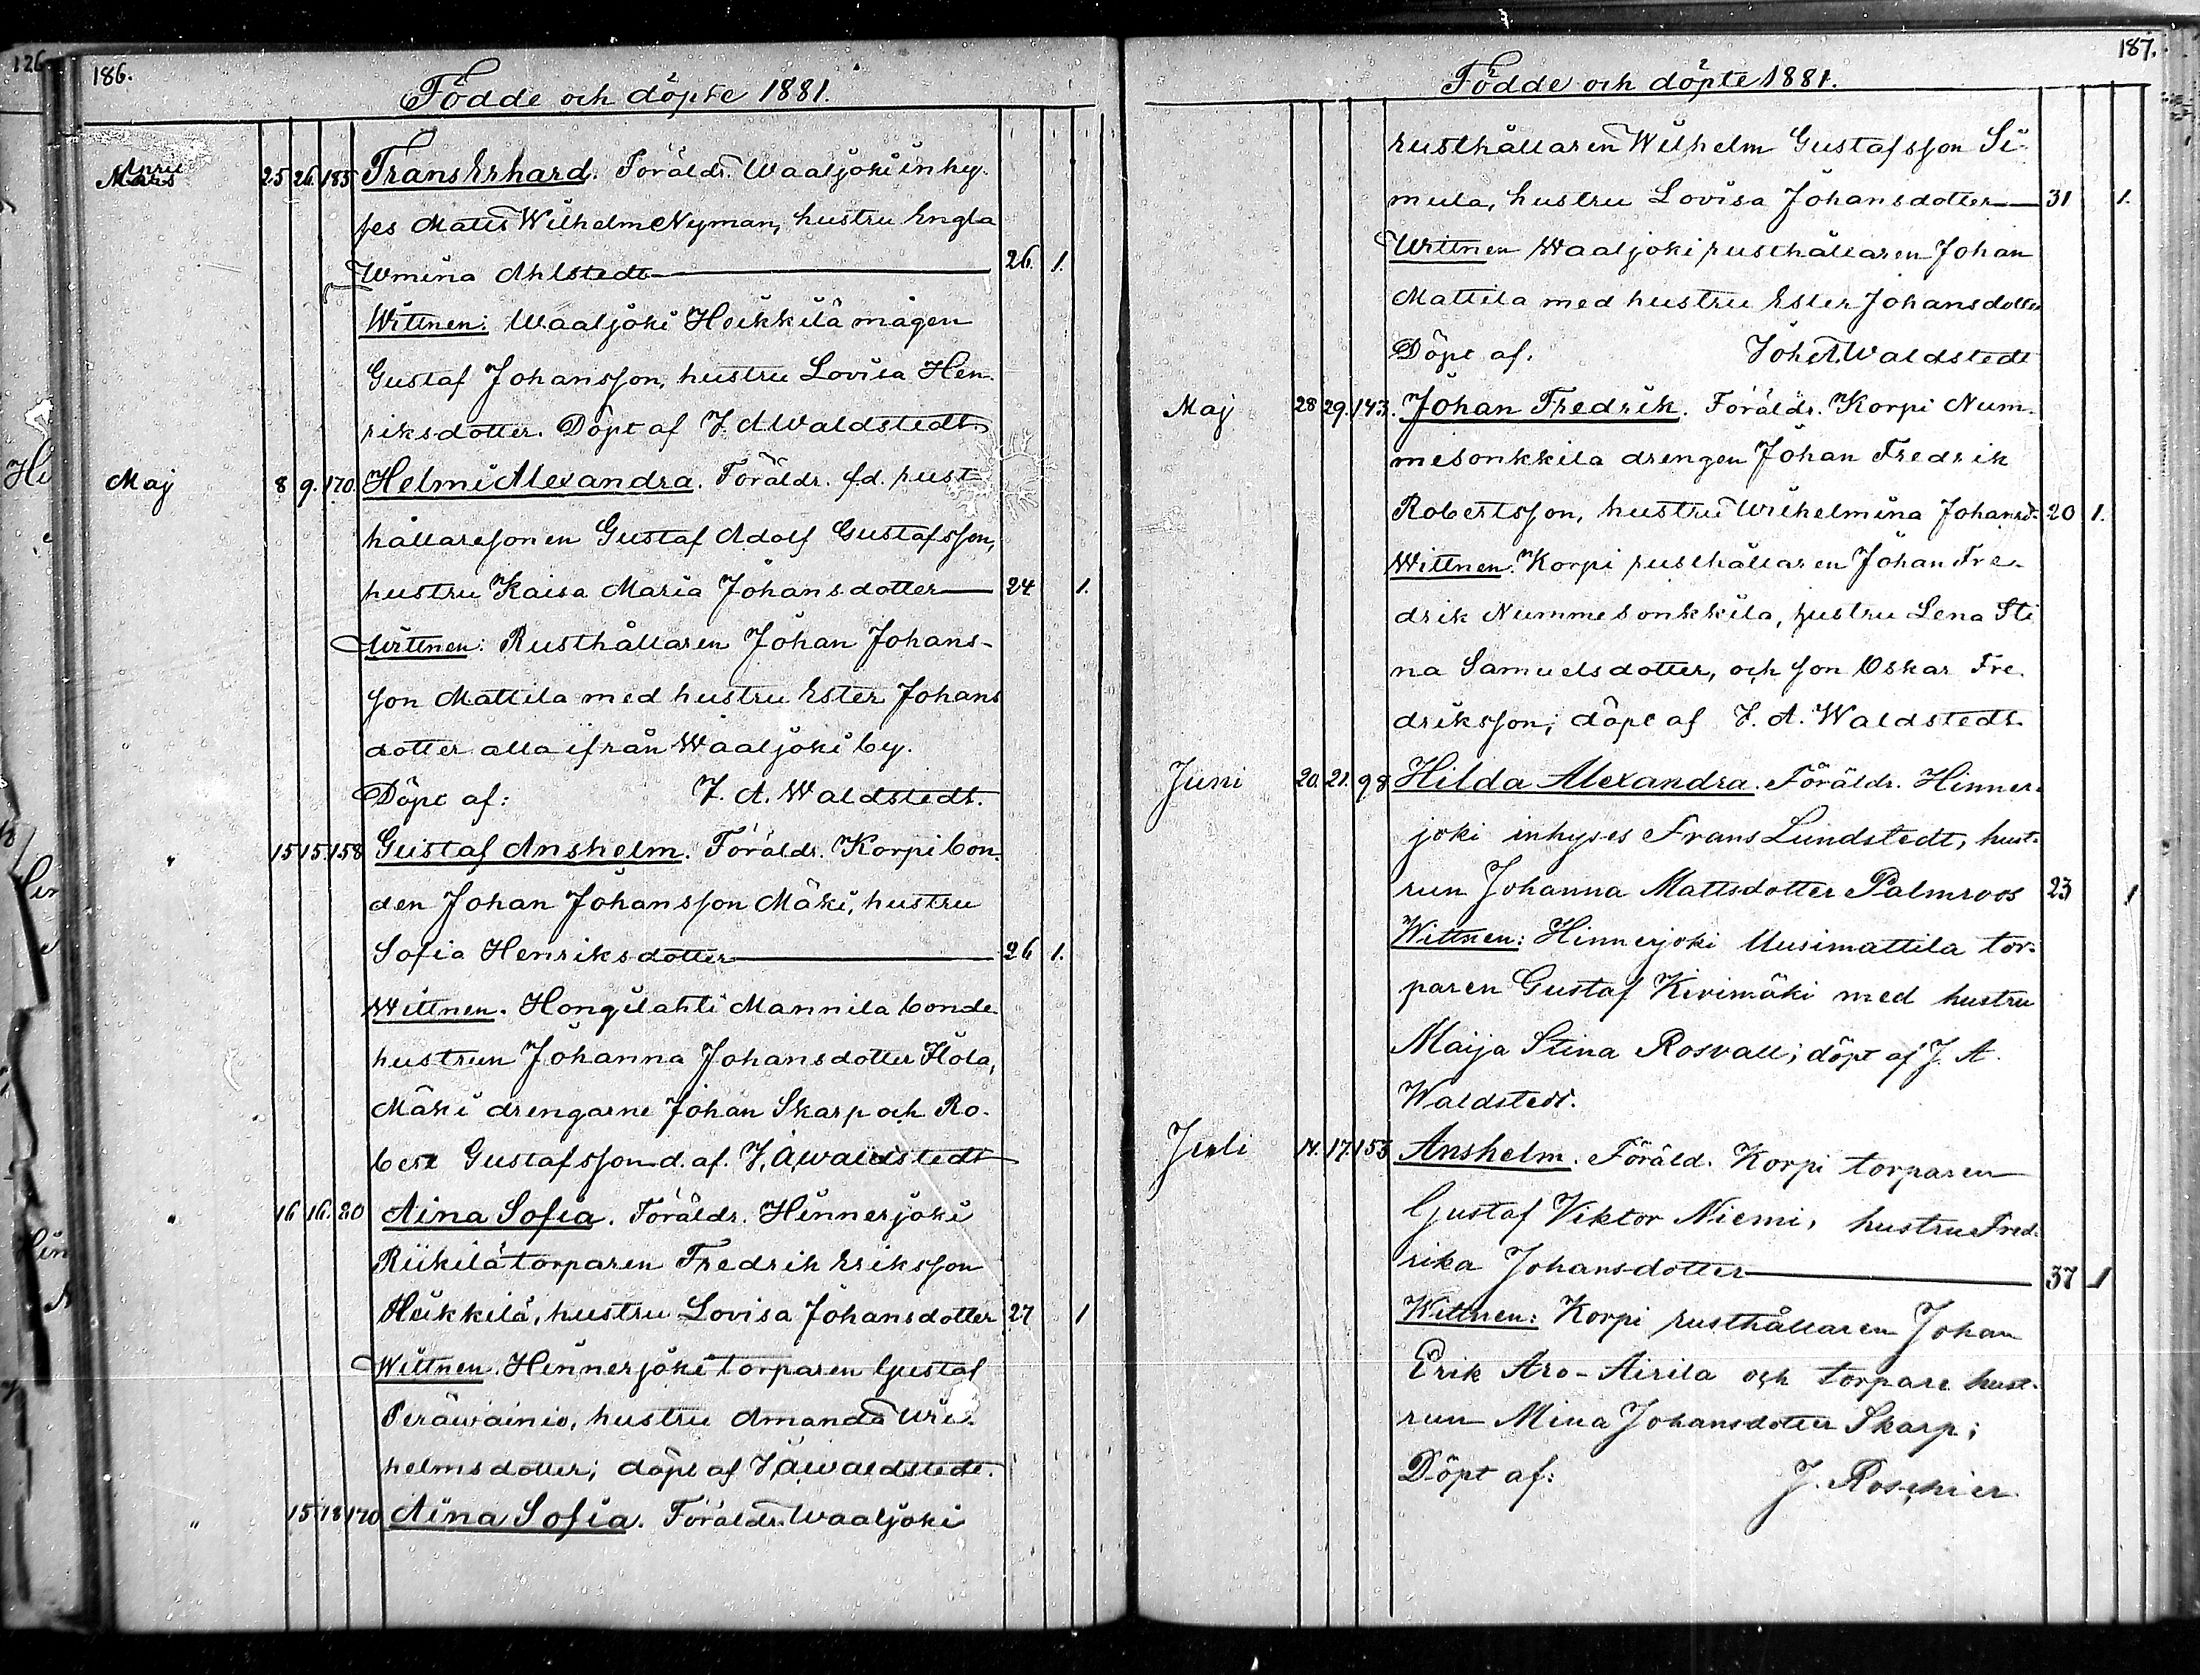 186.
Födde och döpte 1881.
April
Mars 25 26. 185 Frans Erhard. Föräldr. Waaljoki inhy-
ses Matts Wilhelm Nyman, hustru Engla
Wmina Ahlstedt 26. 1.
Wittnen: Waaljoki Heikkilä mågen
Gustaf Johansson, hustru Lovisa Hen-
riksdotter. Döpt af J. A Waldstedt
Maj 8 9. 170. Helmi Alexandra. Föräldr. f.d. rust
hållaresonen Gustaf Adolf Gustafsson,
hustru Kaisa Maria Johansdotter 24 1.
Wittnen: Rusthållaren Johan Johans-
son Mattila med hustru Ester Johans
dotter alla ifrån Waaljoki by.
Döpt af: J. A. Waldstedt.
" 15 15. 158 Gustaf Anshelm. Föräldr. Korpi bon-
den Johan Johansson Mäki, hustru
Sofia Henriksdotter 26 1.
Wittnen. Hongilahti Mannila bonde-
hustrun Johanna Johansdotter
Mäki drengarne Johan Skarp och Ro-
bert Gustafsson d. af. J. A. Waldstedt
" 16 16. 20 Aina Sofia. Föräldr. Hinnerjoki
Riikilä torparen Fredrik Eriksson
Heikkilä, hustru Lovisa Johansdotter 27 1
Wittnen. Hinnerjoki torparen Gustaf
Peräwainio, hustru Amanda Wil-
helmsdotter; döpt af J. A. Waldstedt.
" 15 18 170 Aina Sofia. Föräldr. Waaljoki
187.
Födde och döpte 1881.
rusthållaren Wilhelm Gustafsson Si-
mula, hustru Lovisa Johansdotter 31 1.
Wittnen Waaljoki rusthållaren Johan
Mattila med hustru Ester Johansdotter
Döpt af. Joh. A. Waldstedt
Maj 28 29. 143. Johan Fredrik. Föräldr. Korpi Num-
mesonkkila drengen Johan Fredrik
Robertsson, hustru Wilhelmina Johansd. 20 1.
Wittnen. Korpi rusthållaren Johan Fre-
drik Nummesonkkila, hustru Lena Sti
na Samuelsdotter, och son Oskar Fre-
driksson; döpt af J. A. Waldstedt.
Juni 20. 21. 98 Hilda Alexandra. Föräldr. Hinner-
joki inhyses Frans Lundstedt, hust-
run Johanna Mattsdotter Palmroos 23 1
Wittnen: Hinnerjoki Uusimattila tor-
paren Gustaf Kivimäki med hustru
Maija Stina Rosvall; döpt af J. A.
Waldstedt.
Juli 14. 17. 153 Anshelm. Föräld. Korpi torparen
Gustaf Viktor Niemi, hustru Fred-
rika Johansdotter 37 1
Wittnen: Korpi rusthållaren Johan
Erik Aro-Airila och torpare hust-
run Mina Johansdotter Skarp;
Döpt af: J. Roschier.